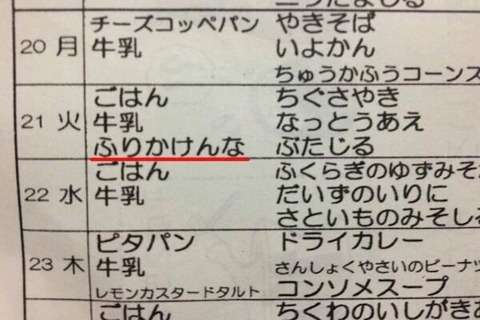 20 月 チーズコッペパン やきそば
牛乳 いよかん
ちゅうかふうコーンス
21 火 ごはん ちぐさやき
牛乳 なっとうあえ
ふりかけんな ぶたじる
22 水 ごはん ふくらぎのゆずみそ
牛乳 だいずのいりに
さといものみそしる
23 木 ピタパン ドライカレー
牛乳 さんしょくやさいのピーナツ
レモンカスタードタルト コンソメスープ
ごはん ちくわのいしがきあ